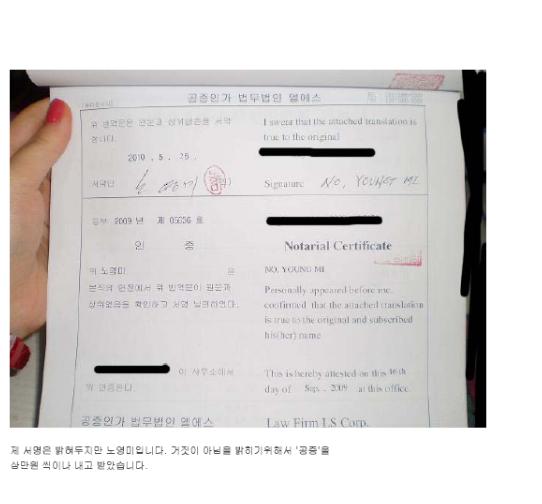 공증인가 법무법인 엘에스
위 번역문은 원문과 상위없음을 서약
합니다.
2010 . 5 . 25 .
서약인
I swear that the attached translation is
true to the original
Signature NO, YOUNG MI
등부 2009 년 제 05036 호
인 증
위 노영미 은
본직의 면전에서 위 번역문이 원문과
상위없음을 확인하고 서명 날인하였다.
이 사무소에서
위 인증한다.
공증인가 법무법인 엘에스
Notarial Certificate
NO, YOUNG MI
Personally appeared before me,
confirmed that the attached translation
is true to the original and subscribed
his(her) name
This is hereby attested on this 16th
day of Sep., 2009 at this office.
Law Firm LS Corp.
제 서명은 밝혀두지만 노영미입니다. 거짓이 아님을 밝히기위해서 '공증'을
삼만원 씩이나 내고 받았습니다.